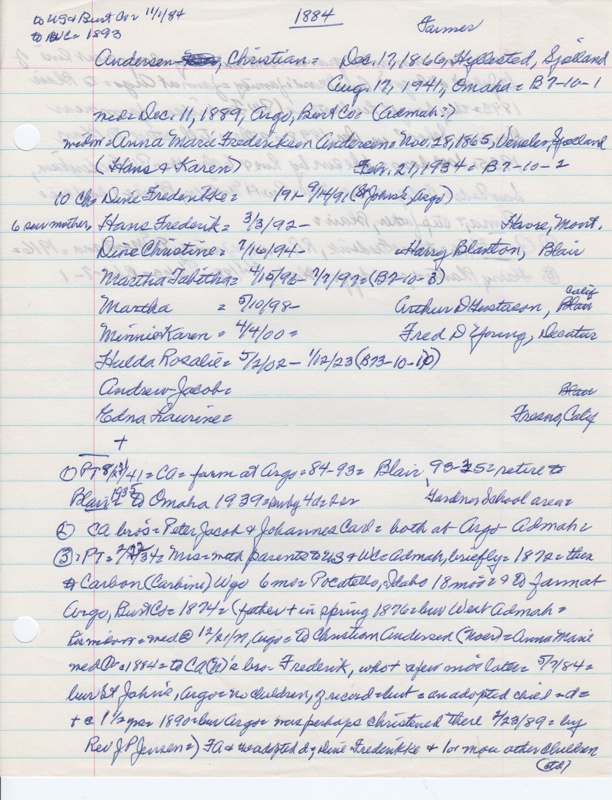 to US & Burt Co = 11/1/84
to WC = 1893
1884
Farmer
Andersen, Christian = Dec. 17, 1866, Hyllested, Sjælland
Aug. 17, 1941, Omaha = B7-10-1
med = Dec. 11, 1889, Argo, Burt Co = (Admah?)
Anna Marie Frederikson Andersen = Nov. 28, 1865, Sjælland
(Hans & Karen) Feb. 21, 1934 = B7-10-2
10 Ch = Dine Frederikke = 191- 9/14/91 (St John's, Argo)
6 surv mother = Hans Frederik = 3/3/92- Havre, Mont.
Dine Christine = 7/16/94- Harry Blanton, Blair
Martha Tabitha = 4/15/96- 7/7/97 = (B7-10-3)
Martha = 5/10/98- Arthur D Gustafson, Blair Calif
Minnie Karen = 4/4/00 = Fred D Young, Decatur
Hulda Rosalie = 5/2/02 - 1/12/23 (B73-10-10)
Andrew Jacob = Blair
Edna Laurine = Fresno, Calif
+
(1) PT 8/21/41 = CA = farm at Argo = 84-93 = Blair, 93-35 = retire to
Blair = 1935 to Omaha 1939 = surv by 4 d & 2 s = Gardner School area =
(2) CA bros = Peter Jacob & Johannes Carl = both at Argo-Admah =
(3) = PT = 2/22/34 = Mrs = with parents to US & WC = Admah, briefly = 1872 = then
to Carbon (Carbini) Wyo 6 mos = Pocatello, Idaho 18 mos = & to farm at
Argo, Burt Co = 1874 = (father + in spring 1876 = bur West Admah =
med @ Argo = to Christian Andersen (Noer) = Anna Marie
med @ = 1884 = to CA(N)'s bro = Frederik, who + a few mos later = 5/7/84 =
bur St John's, Argo = no children, of record = but = an adopted child = d =
+ @ 1 1/2 yrs = 1890 = bur Argo = was perhaps christened there 2/23/89 = by
Rev J P Jensen =) FA & w adopted d = Dine Frederikke & 1 or more other children
(ctd)